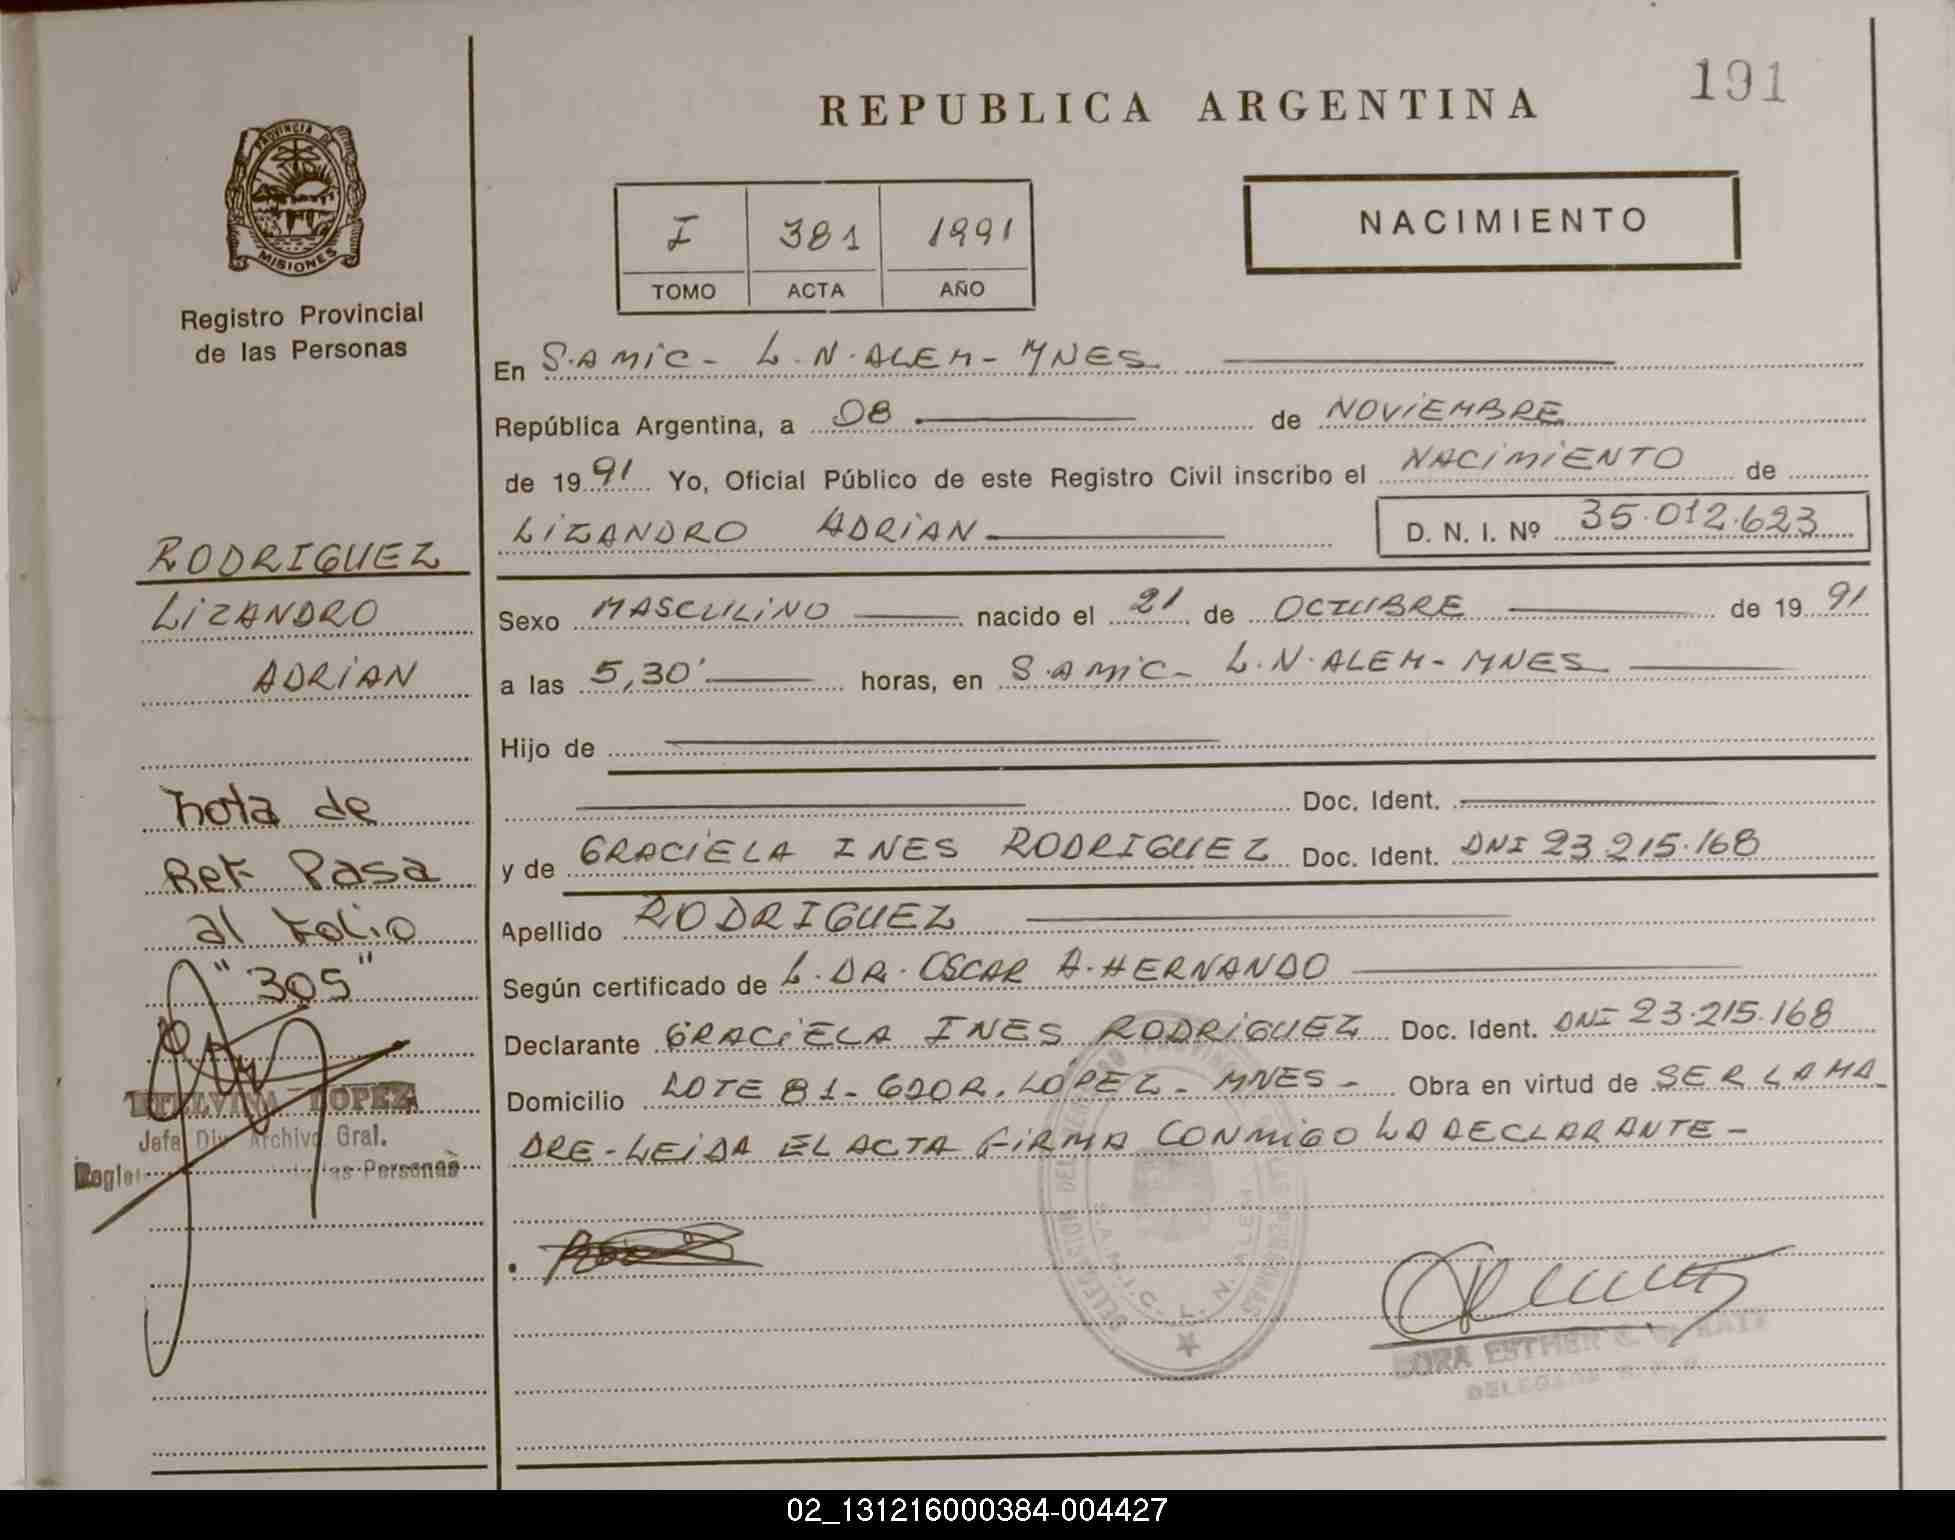 191
REPUBLICA ARGENTINA
PROVINCIA DE
MISIONES
Registro Provincial
de las Personas
I 381 1991
TOMO ACTA AÑO
NACIMIENTO
En S.AMIC- L.N.ALEM-MNES
República Argentina, a 08 de NOVIEMBRE
de 1991 Yo, Oficial Público de este Registro Civil inscribo el NACIMIENTO de
LIZANDRO ADRIAN D. N. I. Nº 35.012.623
Sexo MASCULINO nacido el 21 de OCTUBRE de 1991
a las 5,30' horas, en S.AMIC- L.N.ALEM-MNES
Hijo de
Doc. Ident.
y de GRACIELA INES RODRIGUEZ Doc. Ident. DNI 23.215.168
Apellido RODRIGUEZ
Según certificado de L.DR.OSCAR A.HERNANDO
Declarante GRACIELA INES RODRIGUEZ Doc. Ident. DNI 23.215.168
Domicilio LOTE 81-GDOR.LOPEZ-MNES- Obra en virtud de SER LA MA
DRE-LEIDA EL ACTA FIRMA CONMIGO LA DECLARANTE-
RODRIGUEZ
LIZANDRO
ADRIAN
nota de
Ref. Pasa
al Folio
"305"
LOPEZ
Jefa Div. Archivo Gral.
las Personas
S.A.M.I.C. L. N. ALEM
ESTHER
02_131216000384-004427